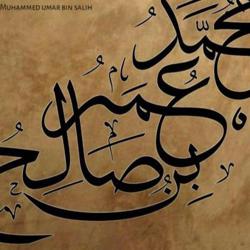 MUHAMMED UMAR BIN SALIH
محمد
عمر
بن صالح